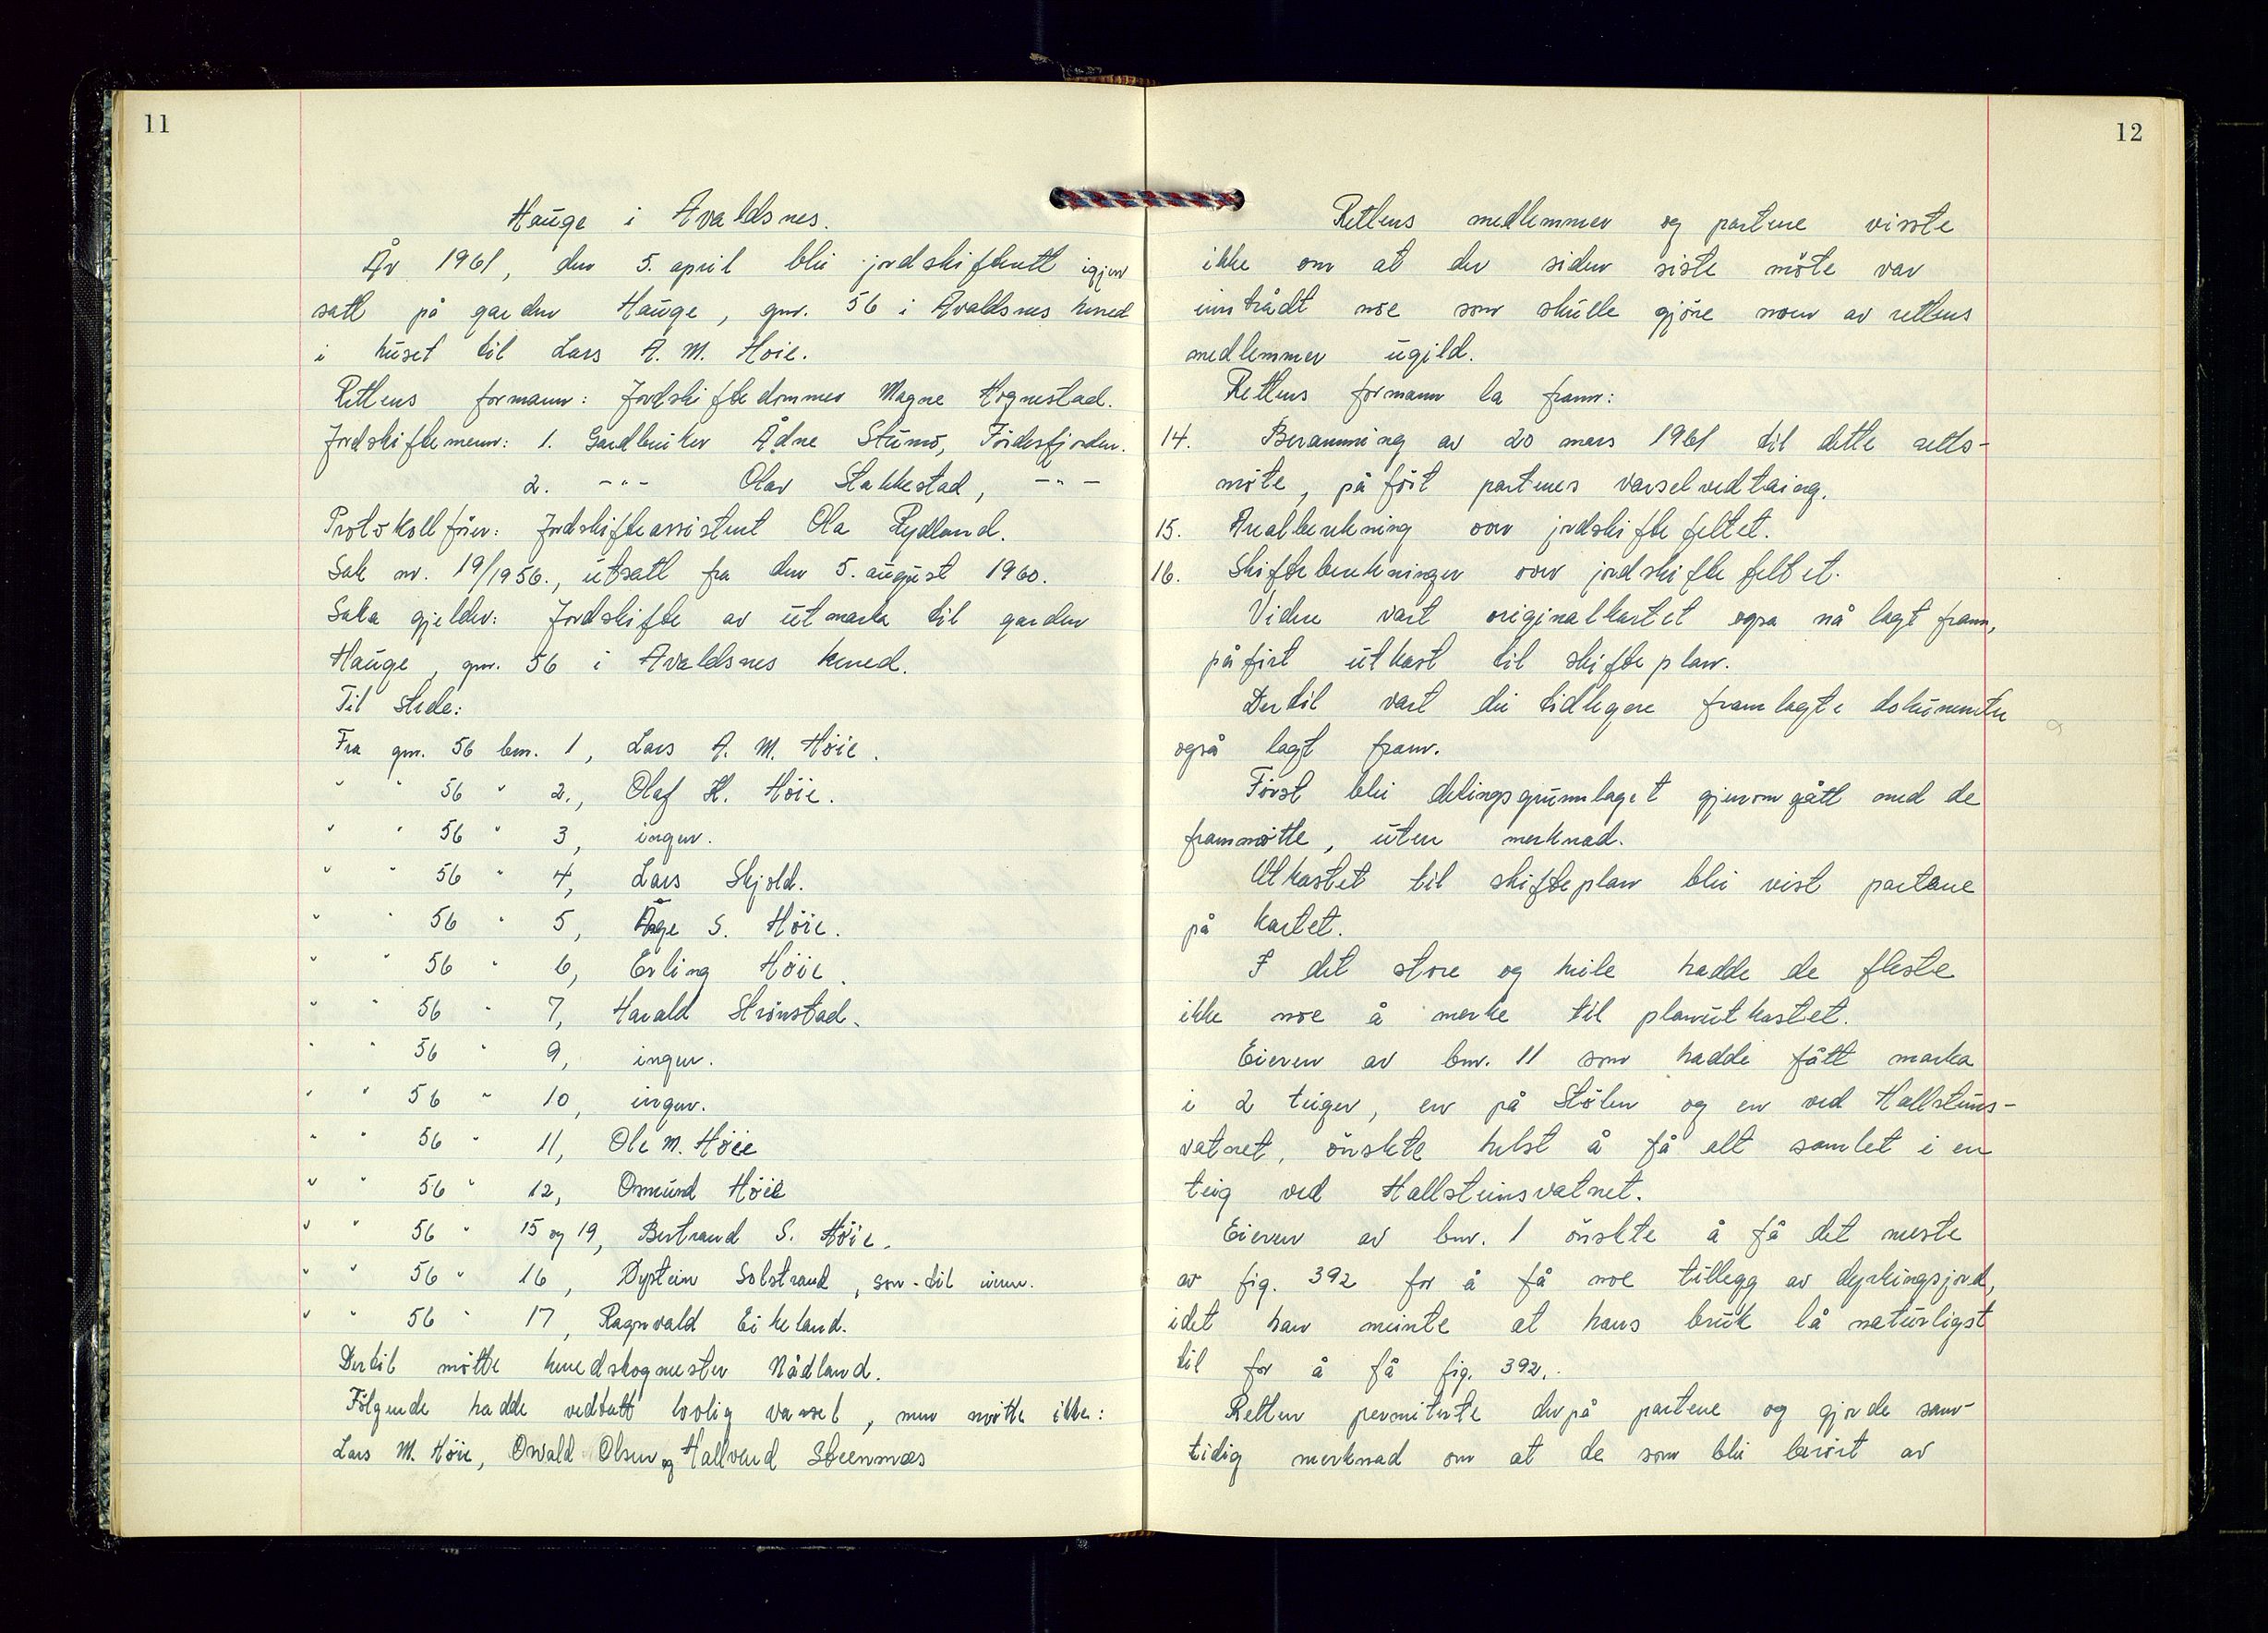 11
Hauge i Avaldsnes.
År 1961, den 5. april blei jordskifterett igjen
satt på garden Hauge, gnr. 56 i Avaldsnes herred
i huset til Lars A. M. Höie.
Rettens formann: Jordskiftedommer Magne Hognestad.
Jordskiftemenn: 1. Gardbruker Ådne Stumo, Fördesfjorden.
2. -"- Olav Stakkestad, -"-
Protokollförer: Jordskifteassistent Ola Rydland.
Sak nr. 19/1956., utsatt fra den 5. august 1960.
Saka gjelder: Jordskifte av utmarka til garden
Hauge, gnr. 56 i Avaldsnes herred.
Til stede:
Fra gnr. 56 bnr. 1, Lars A. M. Höie.
" " 56 " 2., Olaf K. Höie.
" " 56 " 3, ingen.
" " 56 " 4, Lars Skjold.
" " 56 " 5, Åge S. Höie.
" " 56 " 6, Erling Höie.
" " 56 " 7, Harald Strönstad.
" " 56 " 9, ingen.
" " 56 " 10, ingen.
" " 56 " 11, Ole M. Höie
" " 56 " 12, Osmund Höie
" " 56 " 15 og 19, Bertrand S. Höie.
" " 56 " 16, Öystein Solstrand, son til
" " 56 " 17, Ragnvald Eikeland.
Dertil mötte herredskogmester Nådland.
Fölgende hadde vedtatt lovlig varsel, men mötte ikke:
Lars M. Höie, Oswald Olsen og Hallvard Steennæs
12
Rettens medlemmer og partene visste
ikke om at der siden siste möte var
inntrådt noe som skulle gjöre noen av rettens
medlemmer ugild.
Rettens formann la fram:
14. Beramming av 20 mars 1961 til dette retts-
möte, påfört partenes varselvedtaing.
15. Arealberekning over jordskiftefeltet.
16. Skifteberekninger over jordskiftefeltet.
Videre vart originalkartet også nå lagt fram,
påfört utkast til skifteplan.
Dertil vart dei tidligere framlagte dokumenter
også lagt fram.
Først blei delingsgrunnlaget gjennomgått med de
frammötte, uten merknad.
Utkastet til skifteplan blei vist partane
på kartet.
I det store og heile hadde de fleste
ikke noe å merke til planutkastet.
Eieren av bnr. 11 som hadde fått marka
i 2 teiger, en på Stölen og en ved Hallsteins-
vatnet, önskte helst å få alt samlet i en
teig ved Hallsteinsvatnet.
Eieren av bnr. 1 önskte å få det meste
av fig. 392 for å få noe tillegg av dyrkingsjord,
idet han meinte at hans bruk lå naturligst
til for å få fig. 392.
Retten permiterte derpå partene og gjorde sam-
tidig merknad om at de som blei berört av